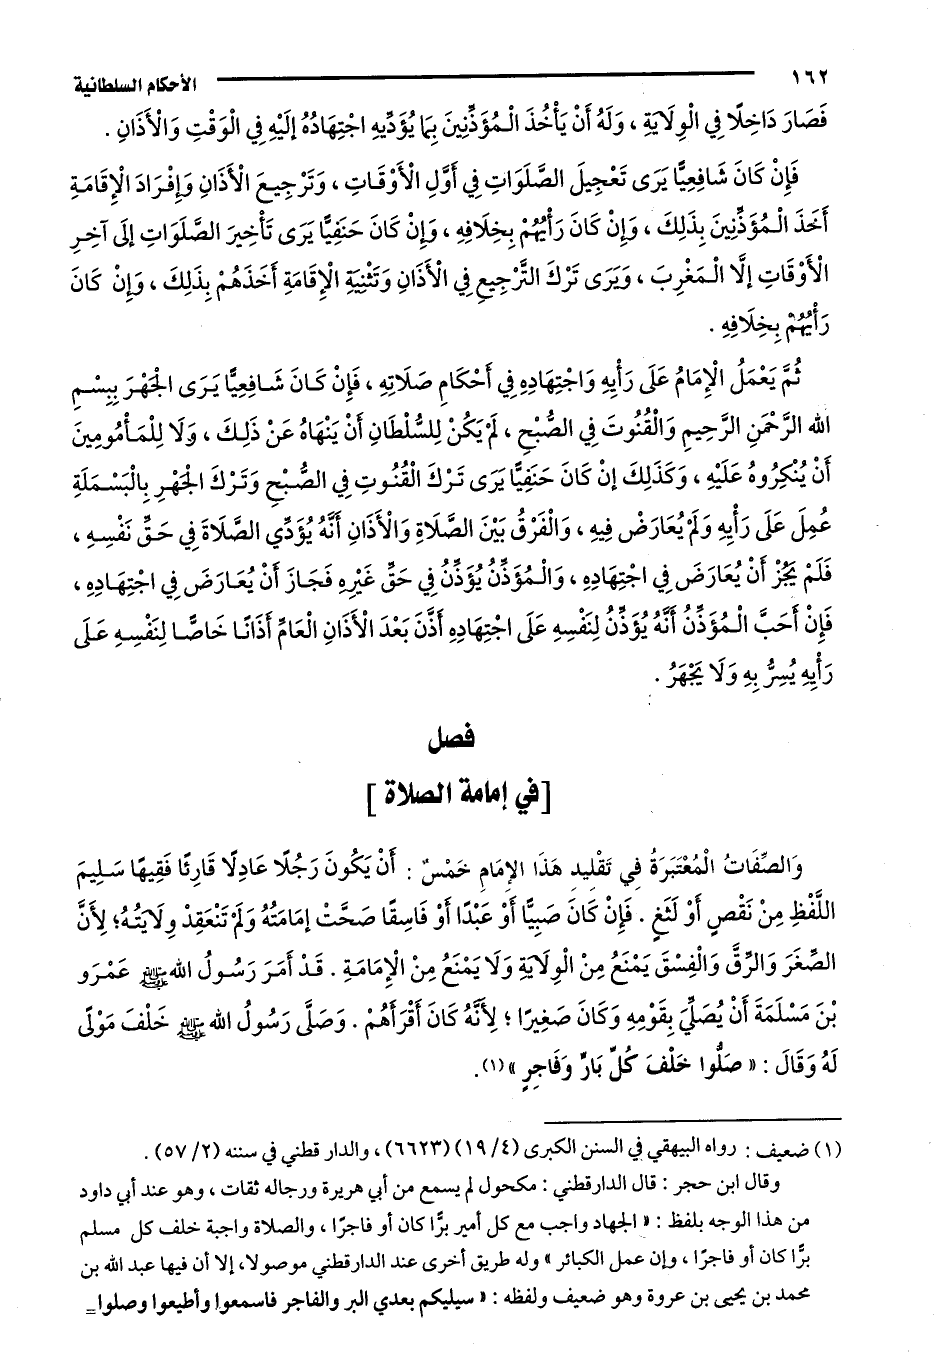 ١٦٢ الأحكام السلطانية
فَصَارَ دَاخِلًا فِي الْوِلَايَةِ ، وَلَهُ أَنْ يَأْخُذَ الْمُؤَذِّنِينَ بِمَا يُؤَدِّيهِ اجْتِهَادُهُ إلَيْهِ فِي الْوَقْتِ وَالْأَذَانِ .
فَإِنْ كَانَ شَافِعِيًّا يَرَى تَعْجِيلَ الصَّلَوَاتِ فِي أَوَّلِ الْأَوْقَاتِ ، وَتَرْجِيعَ الْأَذَانِ وَإِفْرَادَ الْإِقَامَةِ
أَخَذَ الْمُؤَذِّنِينَ بِذَلِكَ ، وَإِنْ كَانَ رَأْيُهُمْ بِخِلَافِهِ ، وَإِنْ كَانَ حَنَفِيًّا يَرَى تَأْخِيرَ الصَّلَوَاتِ إلَى آخِرِ
الْأَوْقَاتِ إلَّا الْمَغْرِبَ ، وَيَرَى تَرْكَ التَّرْجِيعِ فِي الْأَذَانِ وَتَثْنِيَةِ الْإِقَامَةِ أَخَذَهُمْ بِذَلِكَ ، وَإِنْ كَانَ
رَأْيُهُمْ بِخِلَافِهِ .
ثُمَّ يَعْمَلُ الْإِمَامُ عَلَى رَأْيِهِ وَاجْتِهَادِهِ فِي أَحْكَامِ صَلَاتِهِ ، فَإِنْ كَانَ شَافِعِيًّا يَرَى الْجَهْرَ بِبِسْمِ
الله الرَّحْمَنِ الرَّحِيمِ وَالْقُنُوتَ فِي الصُّبْحِ ، لَمْ يَكُنْ لِلسُّلْطَانِ أَنْ يَنْهَاهُ عَنْ ذَلِكَ ، وَلَا لِلْمَأْمُومِينَ
أَنْ يُنْكِرُوهُ عَلَيْهِ ، وَكَذَلِكَ إنْ كَانَ حَنَفِيًّا يَرَى تَرْكَ الْقُنُوتِ فِي الصُّبْحِ وَتَرْكَ الْجَهْرِ بِالْبَسْمَلَةِ
عُمِلَ عَلَى رَأْيِهِ وَلَمْ يُعَارَضْ فِيهِ ، وَالْفَرْقُ بَيْنَ الصَّلَاةِ وَالْأَذَانِ أَنَّهُ يُؤَدِّي الصَّلَاةَ فِي حَقِّ نَفْسِهِ ،
فَلَمْ يَجُزْ أَنْ يُعَارَضَ فِي اجْتِهَادِهِ ، وَالْمُؤَذِّنُ يُؤَذِّنُ فِي حَقِّ غَيْرِهِ فَجَازَ أَنْ يُعَارَضَ فِي اجْتِهَادِهِ ،
فَإِنْ أَحَبَّ الْمُؤَذِّنُ أَنَّهُ يُؤَذِّنُ لِنَفْسِهِ عَلَى اجْتِهَادِهِ أَذَّنَ بَعْدَ الْأَذَانِ الْعَامِّ أَذَانًا خَاصًّا لِنَفْسِهِ عَلَى
رَأْيِهِ يُسِرُّ بِهِ وَلَا يَجْهَرُ .
فصل
[ في إمامة الصلاة ]
وَالصِّفَاتُ الْمُعْتَبَرَةُ فِي تَقْلِيدِ هَذَا الْإِمَامِ خَمْسٌ : أَنْ يَكُونَ رَجُلًا عَادِلًا قَارِئًا فَقِيهًا سَلِيمَ
اللَّفْظِ مِنْ نَقْصٍ أَوْ لَثَغٍ . فَإِنْ كَانَ صَبِيًّا أَوْ عَبْدًا أَوْ فَاسِقًا صَحَّتْ إمَامَتُهُ وَلَمْ تَنْعَقِدْ وِلَايَتُهُ؛ لِأَنَّ
الصِّغَرَ وَالرِّقَّ وَالْفِسْقَ يَمْنَعُ مِنْ الْوِلَايَةِ وَلَا يَمْنَعُ مِنْ الْإِمَامَةِ . قَدْ أَمَرَ رَسُولُ الله ﷺ عَمْرَو
بْنَ مَسْلَمَةَ أَنْ يُصَلِّيَ بِقَوْمِهِ وَكَانَ صَغِيرًا ؛ لِأَنَّهُ كَانَ أَقْرَأَهُمْ . وَصَلَّى رَسُولُ الله ﷺ خَلْفَ مَوْلًى
لَهُ وَقَالَ : « صَلُّوا خَلْفَ كُلِّ بَارٍّ وَفَاجِرٍ »(١).
(١) ضعيف : رواه البيهقي في السنن الكبرى (٤/ ١٩) (٦٦٢٣) ، والدار قطني في سننه (٢/ ٥٧) .
وقال ابن حجر : قال الدارقطني : مكحول لم يسمع من أبي هريرة ورجاله ثقات ، وهو عند أبي داود
من هذا الوجه بلفظ : « الجهاد واجب مع كل أمير برًّا كان أو فاجرًا ، والصلاة واجبة خلف كل مسلم
برًّا كان أو فاجرًا ، وإن عمل الكبائر » وله طريق أخرى عند الدارقطني موصولا، إلا أن فيها عبد الله بن
محمد بن يحيى بن عروة وهو ضعيف ولفظه : « سيليكم بعدي البر والفاجر فاسمعوا وأطيعوا وصلوا=